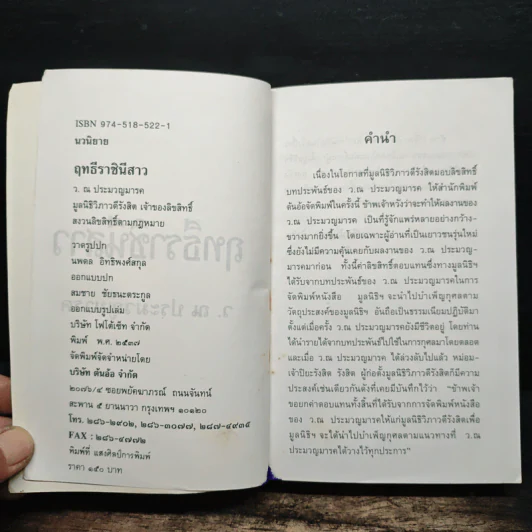 ISBN 974-518-522-1
นวนิยาย
ฤทธีราชินีสาว
ว. ณ ประมวญมารค
มูลนิธิวิภาวดีรังสิต เจ้าของลิขสิทธิ์
สงวนลิขสิทธิ์ตามกฎหมาย
วาดรูปปก
นพดล อิทธิพงศ์สกุล
ออกแบบปก
สมชาย ชัยธนะตระกูล
ออกแบบรูปเล่ม
บริษัท โฟโต้เซ้ท จำกัด
พิมพ์ พ.ศ. ๒๕๓๗
จัดพิมพ์จัดจำหน่ายโดย
บริษัท ต้นอ้อ จำกัด
๒๐๗๖/๔ ซอยพยัคฆาภรณ์ ถนนจันทน์
สะพาน ๕ ยานนาวา กรุงเทพฯ ๑๐๑๒๐
โทร. ๒๘๖-๒๙๐๒, ๒๘๖-๓๐๗๗, ๒๘๗-๔๙๓๕
FAX : ๒๘๖-๔๗๗๒
พิมพ์ที่ แสงศิลป์การพิมพ์
ราคา ๑๕๐ บาท
คำนำ
เนื่องในโอกาสที่มูลนิธิวิภาวดีรังสิตมอบลิขสิทธิ์
บทประพันธ์ของ ว.ณ ประมวญมารค ให้สำนักพิมพ์
ต้นอ้อจัดพิมพ์ในครั้งนี้ ข้าพเจ้าหวังว่าจะทำให้ผลงานของ
ว.ณ ประมวญมารค เป็นที่รู้จักแพร่หลายอย่างกว้าง-
ขวางมากยิ่งขึ้น โดยเฉพาะผู้อ่านที่เป็นเยาวชนรุ่นใหม่
ซึ่งยังไม่มีความคุ้นเคยกับผลงานของ ว.ณ ประมวญ-
มารคมาก่อน ทั้งนี้ค่าลิขสิทธิ์ตอบแทนซึ่งทางมูลนิธิฯ
ได้รับจากบทประพันธ์ของ ว.ณ ประมวญมารคในการ
จัดพิมพ์หนังสือ มูลนิธิฯ จะนำไปบำเพ็ญกุศลตาม
วัตถุประสงค์ของมูลนิธิฯ อันถือเป็นธรรมเนียมปฏิบัติมา
ตั้งแต่เมื่อครั้ง ว.ณ ประมวญมารคยังมีชีวิตอยู่ โดยท่าน
ได้นำรายได้จากบทประพันธ์ไปใช้ในการกุศลมาโดยตลอด
และเมื่อ ว.ณ ประมวญมารค ได้ล่วงลับไปแล้ว หม่อม-
เจ้าปิยะรังสิต รังสิต ผู้ก่อตั้งมูลนิธิวิภาวดีรังสิตก็มีความ
ประสงค์เช่นเดียวกันดังที่เคยมีบันทึกไว้ว่า "ข้าพเจ้า
ขอยกค่าตอบแทนทั้งสิ้นที่ได้รับจากการจัดพิมพ์หนังสือ
ของ ว.ณ ประมวญมารคให้แก่มูลนิธิวิภาวดีรังสิตเพื่อ
มูลนิธิฯ จะได้นำไปบำเพ็ญกุศลตามแนวทางที่ ว.ณ
ประมวญมารคได้วางไว้ทุกประการ"